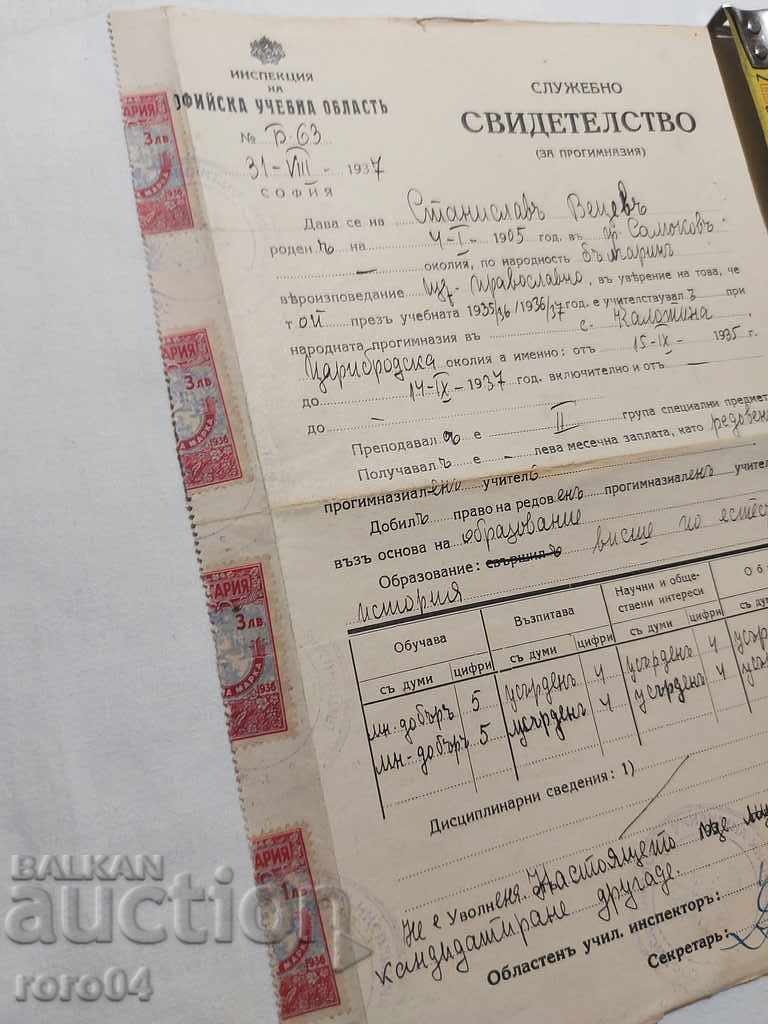 ИНСПЕКЦИЯ
НА
ОФИЙСКА УЧЕБНА ОБЛАСТЬ
№ Б-63
31-VIII- 1937
СОФИЯ
СЛУЖЕБНО
СВИДЕТЕЛСТВО
(ЗА ПРОГИМНАЗИЯ)
Дава се на Станиславъ Вецевъ
роденъ на 4-I- 1905 год. въ гр. Самоковъ
— околия, по народность българинъ
вѣроизповедание изт. православно, въ уверение на това, че
той презъ учебната 1935/36/1936/37 год. е учителствувал при
народната прогимназия въ с. Калотина
Царибродска околия а именно: отъ 15-IX- 1935 г.
до 14-IX- 1937 год. включително и отъ
до —
Преподавалъ е II група специални предмет
Получавалъ е — лева месечна заплата, като редовенъ
прогимназиаленъ учитель
Добилъ право на редовенъ прогимназиаленъ учител
възъ основа на образование
Образование: свършилъ висше по естест
история
Обучава Възпитава Научни и обще-
ствени интереси Об
съ думи цифри съ думи цифри съ думи цифри съ
мн. добъръ 5 усърденъ 4 усърденъ 4 усър
мн. добъръ 5 усърденъ 4 усърденъ 4 усъ
Дисциплинарни сведения: 1)
Не е уволненъ. Настоящето ще му
кандидатиране другаде.
Областенъ учил. инспекторъ:
Секретарь:
АРИЯ
3 лв.
1936
АРИЯ
3 лв
МАРКА
1936
ГАРИЯ
3 лв.
А МАРКА
1936
ГАРИЯ
1 лв.
МАРКА
1936
BALKAN
auction
roro04